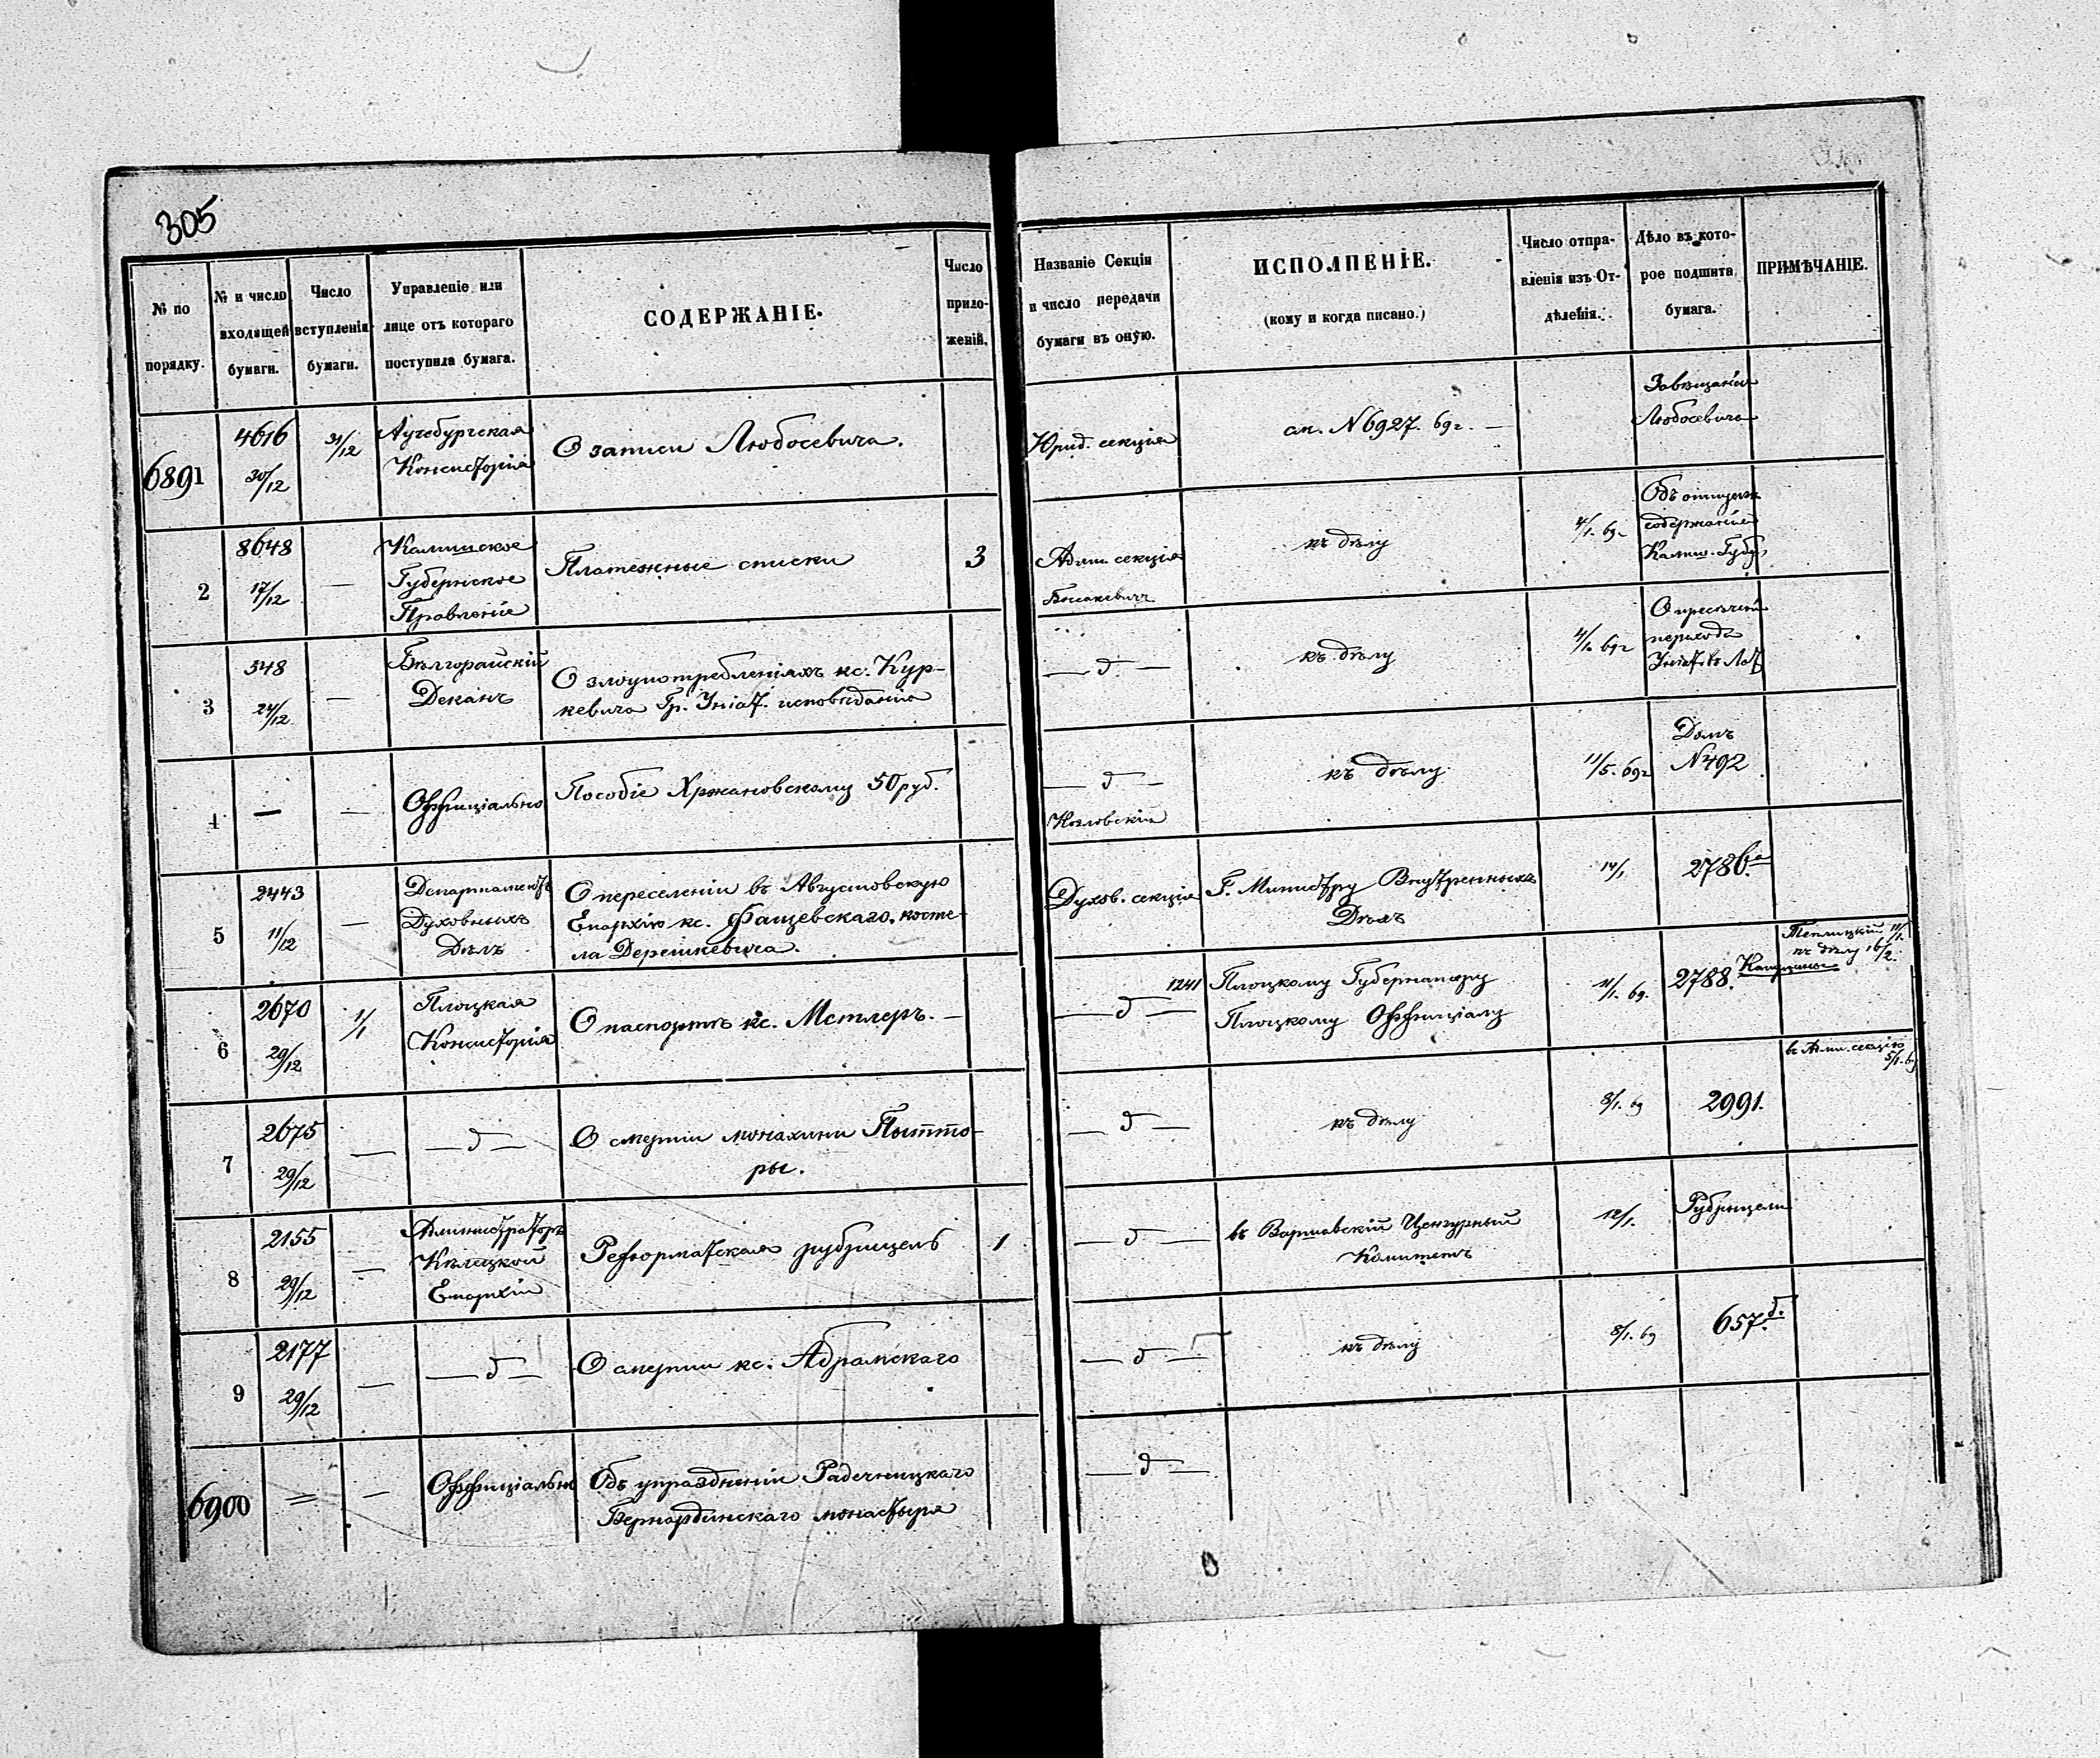 305
№ по порядку.
№ и число входящей бумаги.
Число вступленія бумаги.
Управленіе или лице отъ котораго поступила бумага.
СОДЕРЖАНІЕ.
Число приложеній.
Названіе Секціи и число передачи бумаги въ оную.
ИСПОЛНЕНІЕ.
(кому и когда писано.)
Число отправленія изъ Отдѣленія.
Дѣло въ которое подшита бумага.
ПРИМѢЧАНІЕ.
6891
4616
30/12
31/12
Консисторія
О записи Любосевича.
Юрид. секція
см. N 6927. 69 г. —
Завѣщаніи
Любосевича
2
8648
17/12
—
Калишское
Губернское
Правленіе
Платежные списки
3
Адми. секція
къ дѣлу
4/1. 69 г
Объ
содержаніе
Калиш. Губ.
3
548
24/12
—
Бѣлгорайскій
Деканъ
О злоупотребленіяхъ кс. Кур-
кевича Гр. Уніат. исповѣданія
— д —
къ дѣлу
4/1. 69 г
О пресѣченіи
перехода
Уніат. въ Лат
4
—
—
Оффиціально
Пособіе Хржановскому 50 руб.
— д —
Козловскій
къ дѣлу
11/5. 69 г
Домъ
N 492
5
2443
11/12
—
Департаментъ
Духовныхъ
Дѣлъ
О переселеніи въ Августовскую
Епархію кс. Фащевскаго. косте-
ла Дерешкевича.
Духов. секція
Г. Министру Внутреннихъ
Дѣлъ
14/1
2786.а
6
2670
29/12
1/1
Плоцкая
Консисторія
О паспортѣ кс. Метлеръ. —
1241
— д —
Плоцкому Губернатору
Плоцкому Оффиціалу
11/1. 69.
2788.
Теплицкій 11/1.
къ дѣлу 16/2.
7
2675
29/12
—
— д —
О смерти монахини Пытто-
ры.
— д —
къ дѣлу
8/1. 69
2991.
въ Адми. секцію
5/1. 69
8
2155
29/12
—
Администраторъ
Кѣлецкой
Епархіи
Реформатская рубрицель
1
— д —
въ Варшавскій Ценzурный
Комитетъ
12/1.
Рубрицели
9
2177
29/12
—
— д —
О смерти кс. Абрамскаго
— д —
къ дѣлу
8/1. 69
657.д.
6900
=
—
Оффиціально
Объ упраздненіи Радечницкаго
Бернардинскаго монастыря
— д —